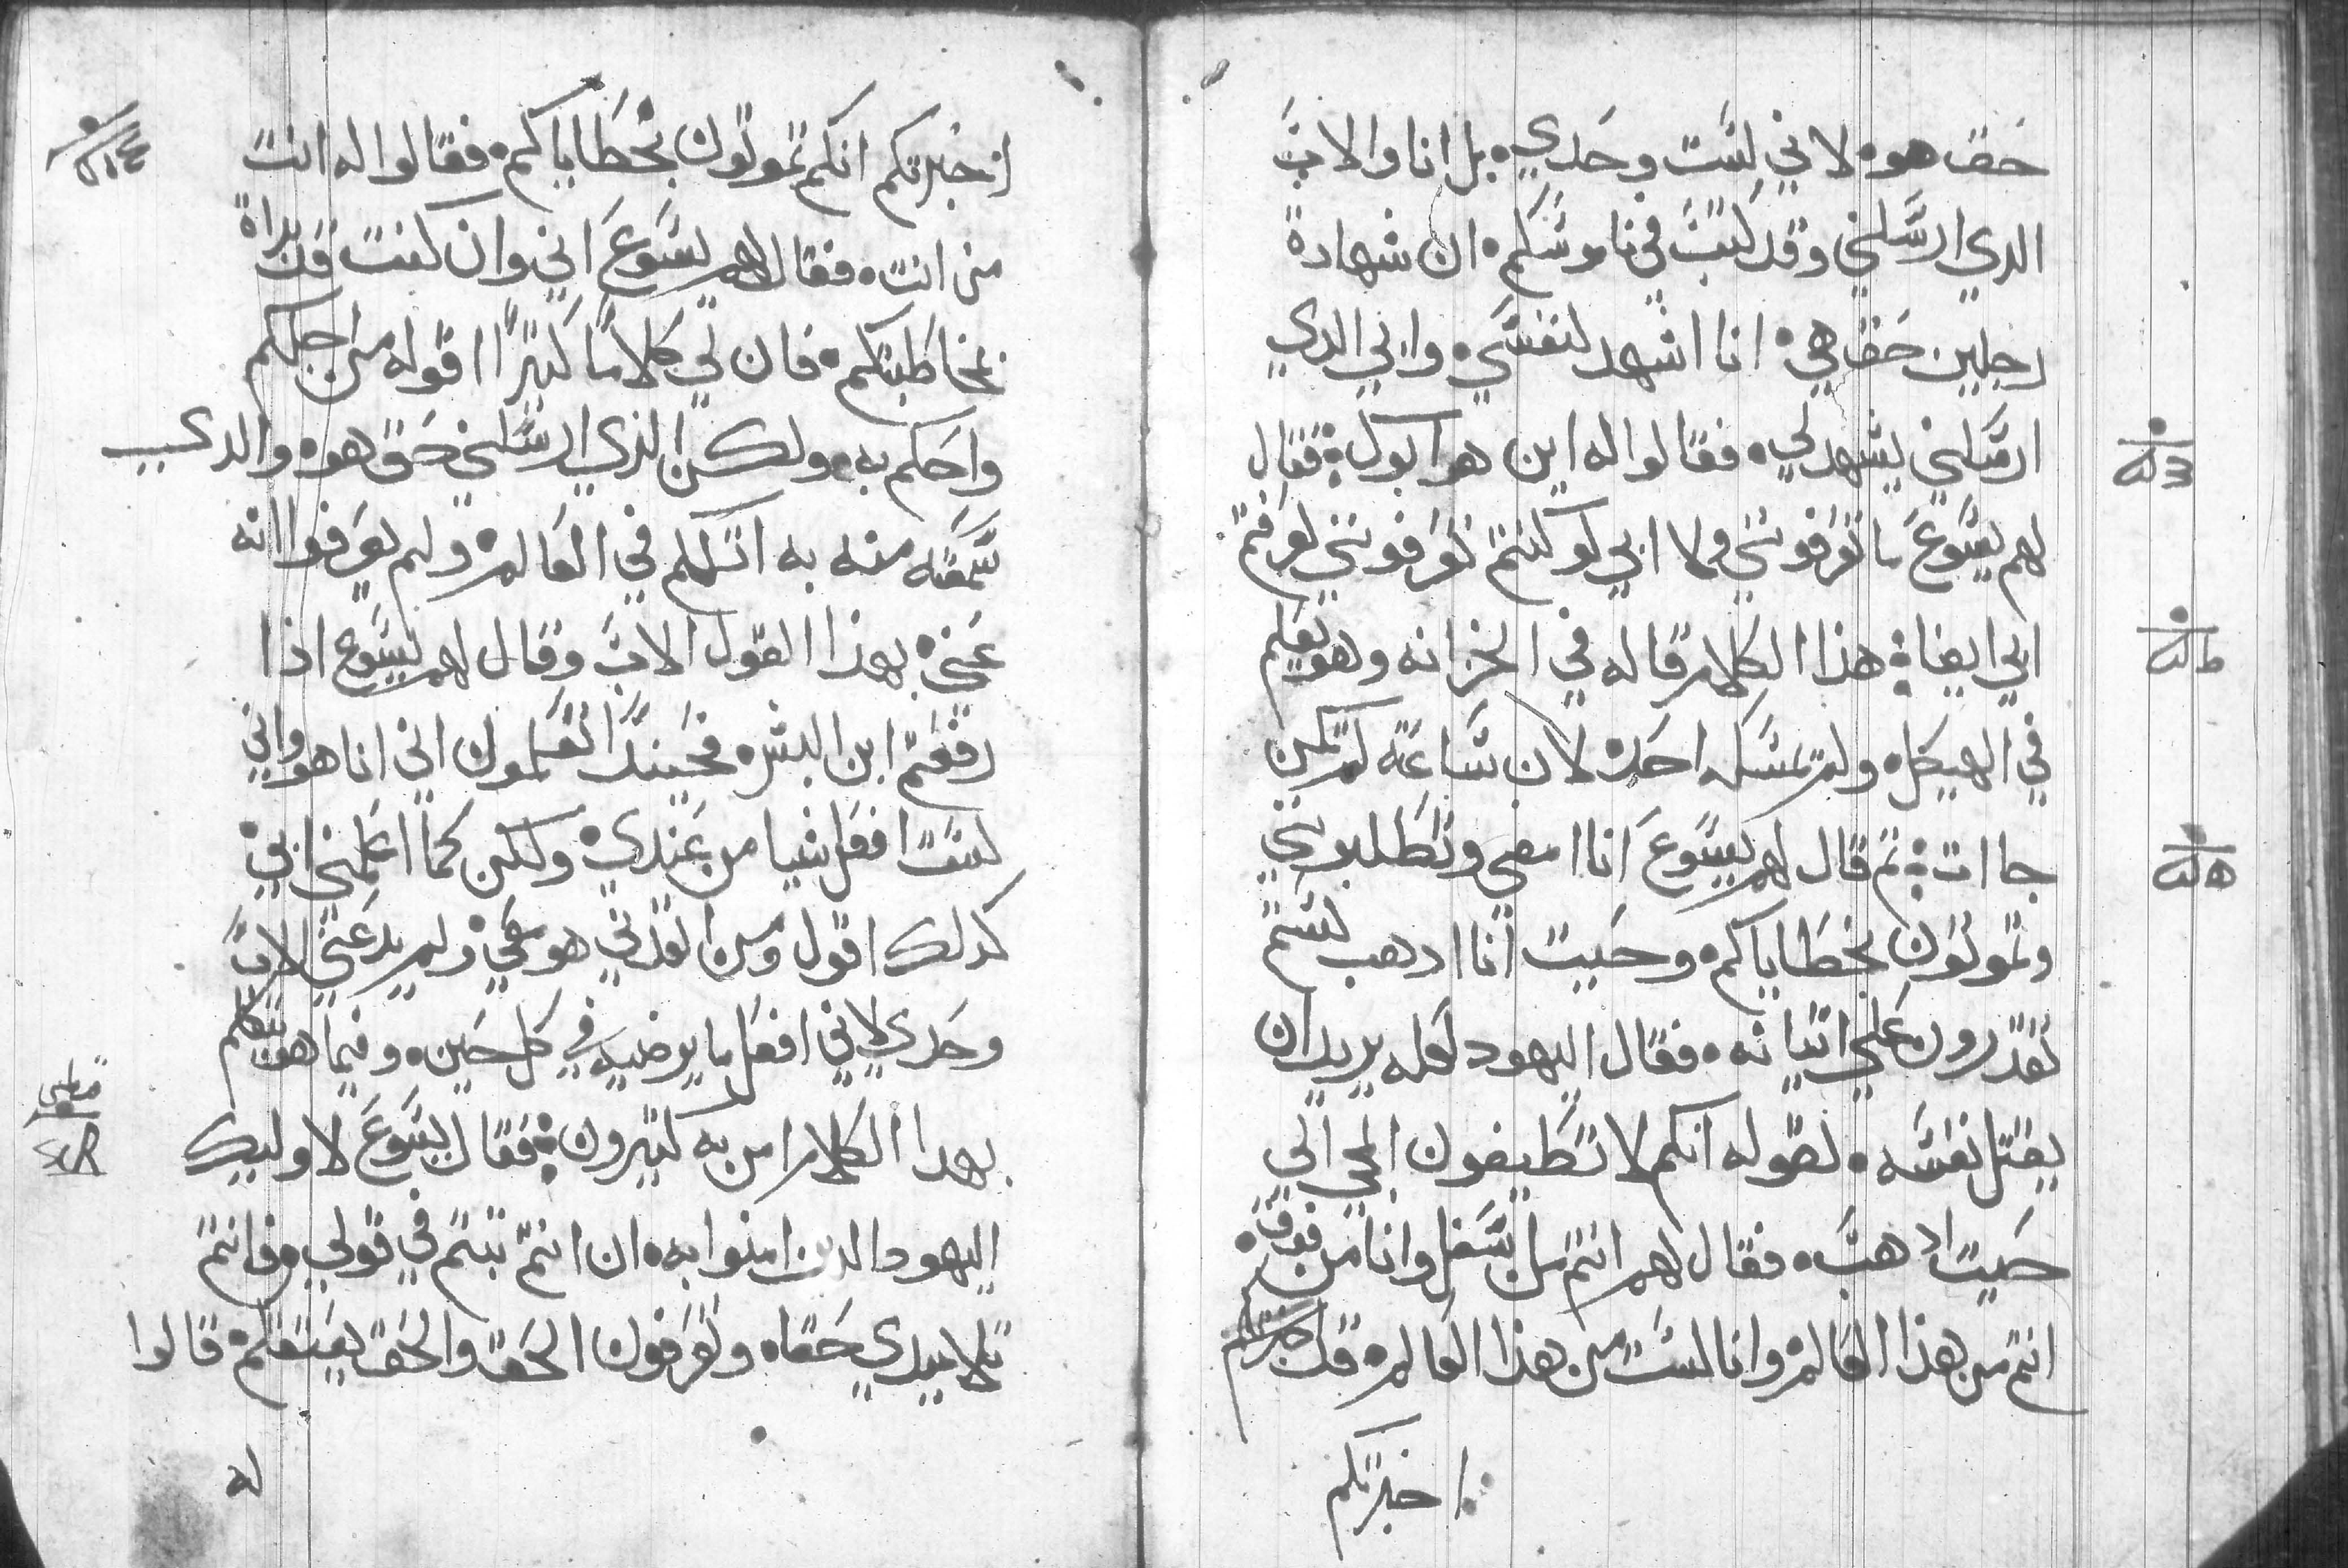 حق هو، لاني لست وحدي، بل انا والاب
الدي ارسلني وقد كتب في ناموسكم، ان شهادة
رجلين حق هي، انا اشهد لنفسي، وابي الدي
ارسلني يشهد لي، فقالوا له اين هو ابوك، فقال
لهم يسوع ما تعرفونني ولا ابي لو كنتم تعرفونني لعرفتم
ابي ايضا، هذا الكلام قاله في الخزانه وهو يعلم
في الهيكل، ولم يمسكه احد، لان ساعته لم تكن
جاات، تم قال لهم يسوع انا امضي وتطلبونني
وتموتون بخطاياكم، وحيت انا ادهب لستم
تقدرون علي اتيانه، فقال اليهود لعله يريد ان
يقتل نفسه، لقوله انكم لا تطيقون المجي الي
حيت ادهب، فقال لهم انتم من سفل وانا من فوق،
انتم من هذا العالم، وانا لست من هذا العالم، قد
اخبرتكم
اخبرتكم انكم تموتون بخطاياكم، فقالوا له انت
من انت، فقال لهم يسوع اني وان كنت قد بداة
بمخاطبتكم، فان لي كلاما كتيرا اقوله من اجلكم
واحكم به، ولكن الذي ارسلني حق هو، والدي
سمعته منه به اتكلم في العالم، ولم يعرفوا انه
عني، بهذا القول الاب وقال لهم يسوع اذا
رفعتم ابن البشر، فحينيد تعلمون اني انا هو واني
لست افعل شيا من عندي، ولكن كما اعلمني ابي،
كدلك اقول ومن انفدني هو معي، ولم يدعني الاب
وحدي لاني افعل ما يرضيه في كل حين، وفيما هو يتكلم
بهدا الكلام امن به كتيرون، فقال يسوع لاوليك
اليهود الدين امنوا به، ان انتم تبتم في قولي، فانتم
تلاميدي حقا، وتعرفون الحق والحق يعتقكم، قالوا
له